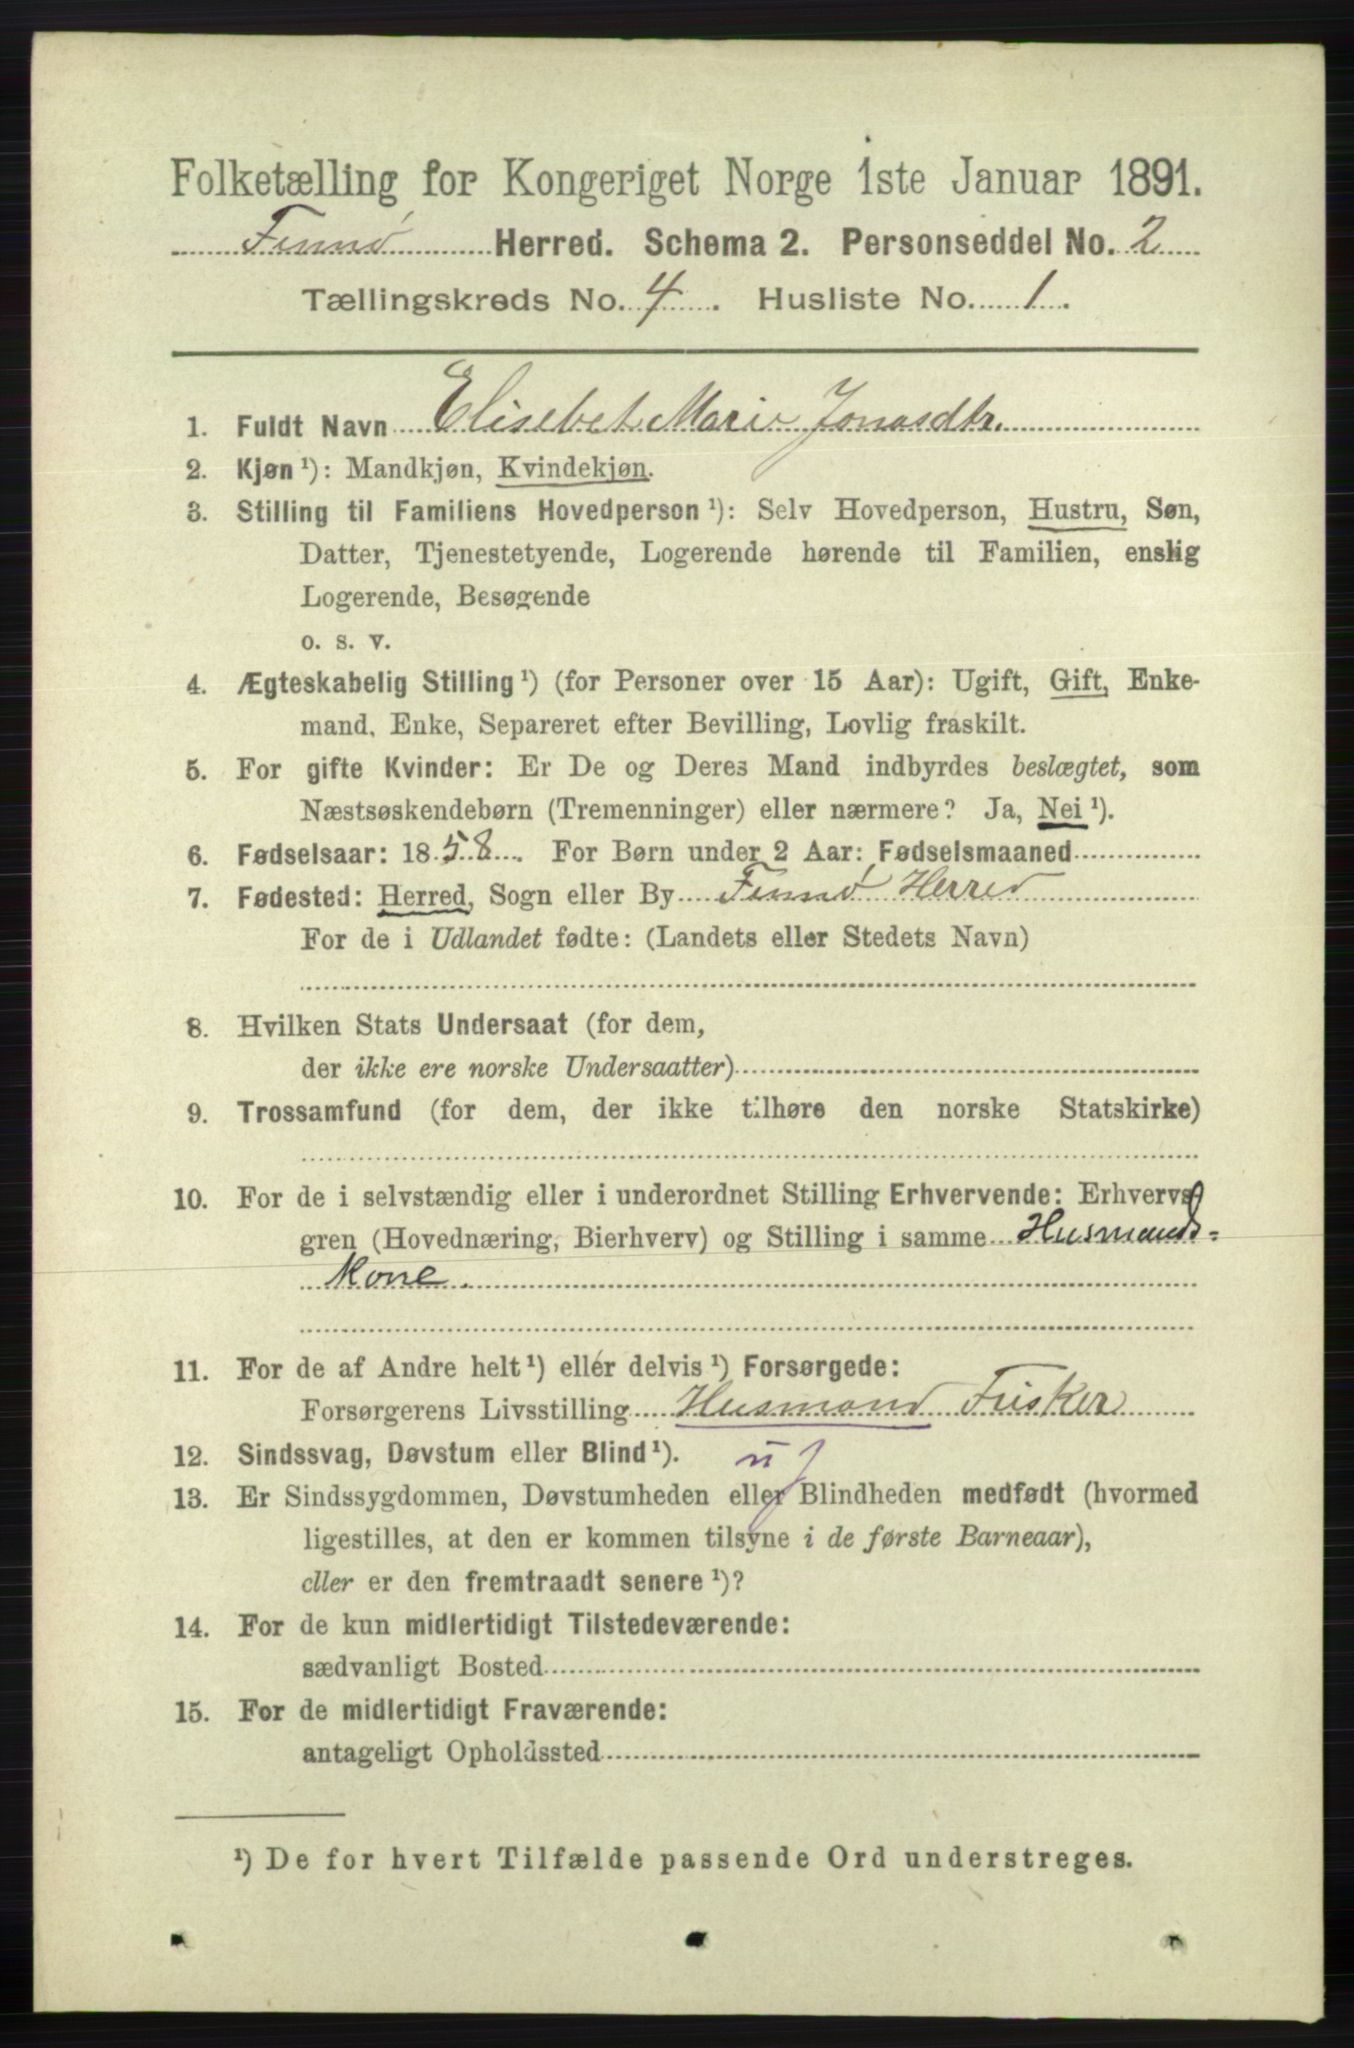 Folketælling for Kongeriget Norge 1ste Januar 1891.
Finnø Herred. Schema 2. Personseddel No. 2
Tællingskreds No. 4. Husliste No. 1.
1. Fuldt Navn Elisebet Marie Jonasdtr.
2. Kjøn ¹): Mandkjøn, Kvindekjøn.
3. Stilling til Familiens Hovedperson ¹): Selv Hovedperson, Hustru, Søn,
Datter, Tjenestetyende, Logerende hørende til Familien, enslig
Logerende, Besøgende
o. s. v.
4. Ægteskabelig Stilling ¹) (for Personer over 15 Aar): Ugift, Gift, Enke-
mand, Enke, Separeret efter Bevilling, Lovlig fraskilt.
5. For gifte Kvinder: Er De og Deres Mand indbyrdes beslægtet, som
Næstsøskendebørn (Tremenninger) eller nærmere? Ja, Nei ¹).
6. Fødselsaar: 1858. For Børn under 2 Aar: Fødselsmaaned
7. Fødested: Herred, Sogn eller By Finnø Herred
For de i Udlandet fødte: (Landets eller Stedets Navn)
8. Hvilken Stats Undersaat (for dem,
der ikke ere norske Undersaatter)
9. Trossamfund (for dem, der ikke tilhøre den norske Statskirke)
10. For de i selvstændig eller i underordnet Stilling Erhvervende: Erhvervs-
gren (Hovednæring, Bierhverv) og Stilling i samme Husmands-
Kone.
11. For de af Andre helt ¹) eller delvis ¹) Forsørgede:
Forsørgerens Livsstilling Husmand Fisker
12. Sindssvag, Døvstum eller Blind ¹).
13. Er Sindssygdommen, Døvstumheden eller Blindheden medfødt (hvormed
ligestilles, at den er kommen tilsyne i de første Barneaar),
eller er den fremtraadt senere ¹)?
14. For de kun midlertidigt Tilstedeværende:
sædvanligt Bosted
15. For de midlertidigt Fraværende:
antageligt Opholdssted
¹) De for hvert Tilfælde passende Ord understreges.